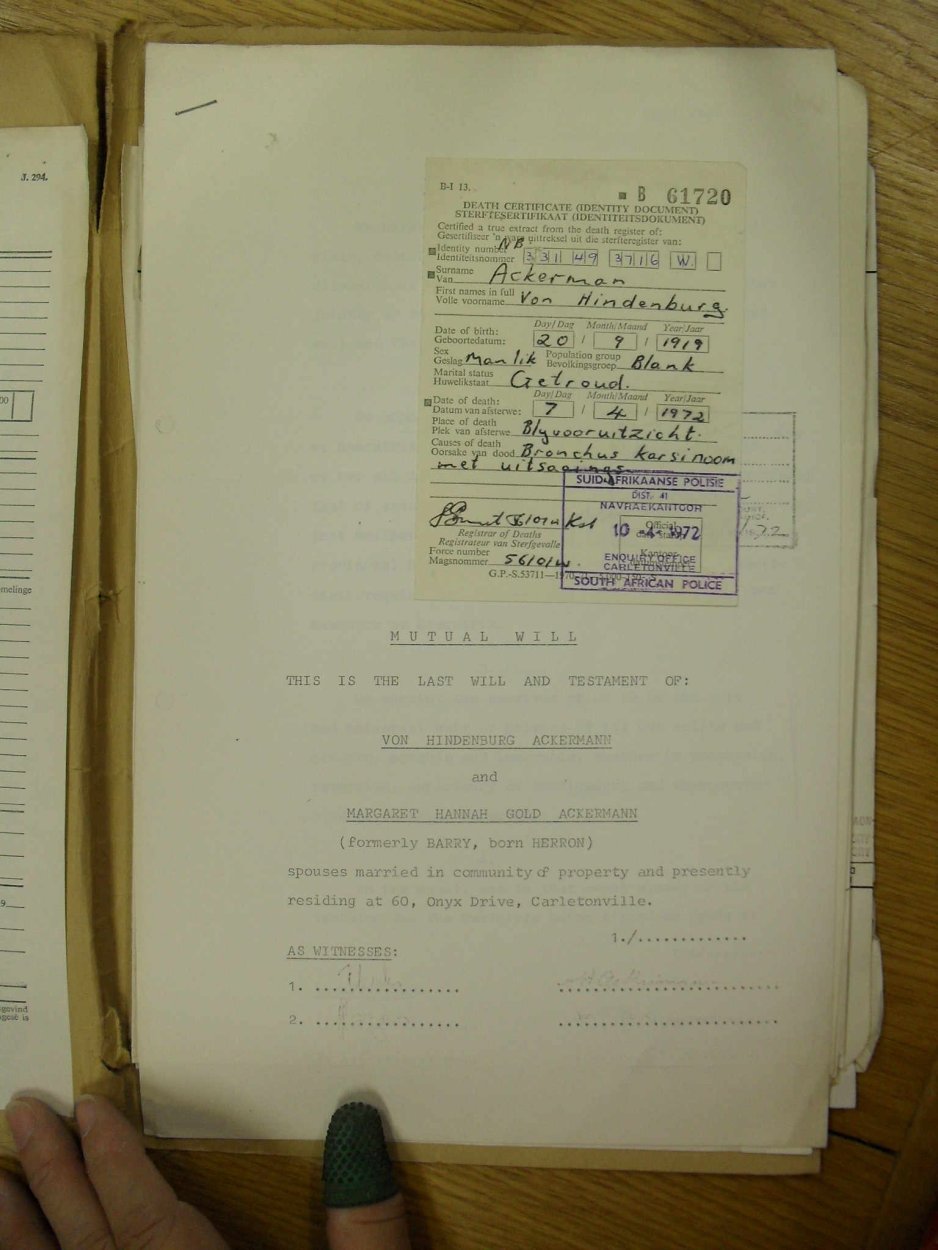 J. 294.
00
melinge
9
gevind
B-I 13.
B 61720
DEATH CERTIFICATE (IDENTITY DOCUMENT)
STERFTESERTIFIKAAT (IDENTITEITSDOKUMENT)
Certified a true extract from the death register of:
Gesertifiseer 'n ware uittreksel uit die sterfteregister van:
NB
Identity number
Identiteitsnommer 331 49 3716 W
Surname
Van Ackerman
First names in full
Volle voorname Von Hindenburg.
Day/Dag Month/Maand Year/Jaar
Date of birth:
Geboortedatum: 20 / 9 / 1919
Sex Population group
Geslag Manlik Bevolkingsgroep Blank
Marital status
Huwelikstaat Getroud.
Day/Dag Month/Maand Year/Jaar
Date of death:
Datum van afsterwe: 7 / 4 / 1972
Place of death
Plek van afsterwe Blyvooruitzicht.
Causes of death
Oorsake van dood Bronchus karsinoom
met uitsaaiings
SUID-AFRIKAANSE POLISIE
DIST. 41
NAVRAEKANTOOR
10 -4- 1972
ENQUIRY OFFICE
CARLETONVILLE
SOUTH AFRICAN POLICE
Official
Kantoor
Registrar of Deaths
Registrateur van Sterfgevalle
Force number
Magsnommer
G.P.-S.53711—1970
MUTUAL WILL
THIS IS THE LAST WILL AND TESTAMENT OF:
VON HINDENBURG ACKERMANN
and
MARGARET HANNAH GOLD ACKERMANN
(formerly BARRY, born HERRON)
spouses married in community of property and presently
residing at 60, Onyx Drive, Carletonville.
1./.............
AS WITNESSES:
1. ................
2. ................